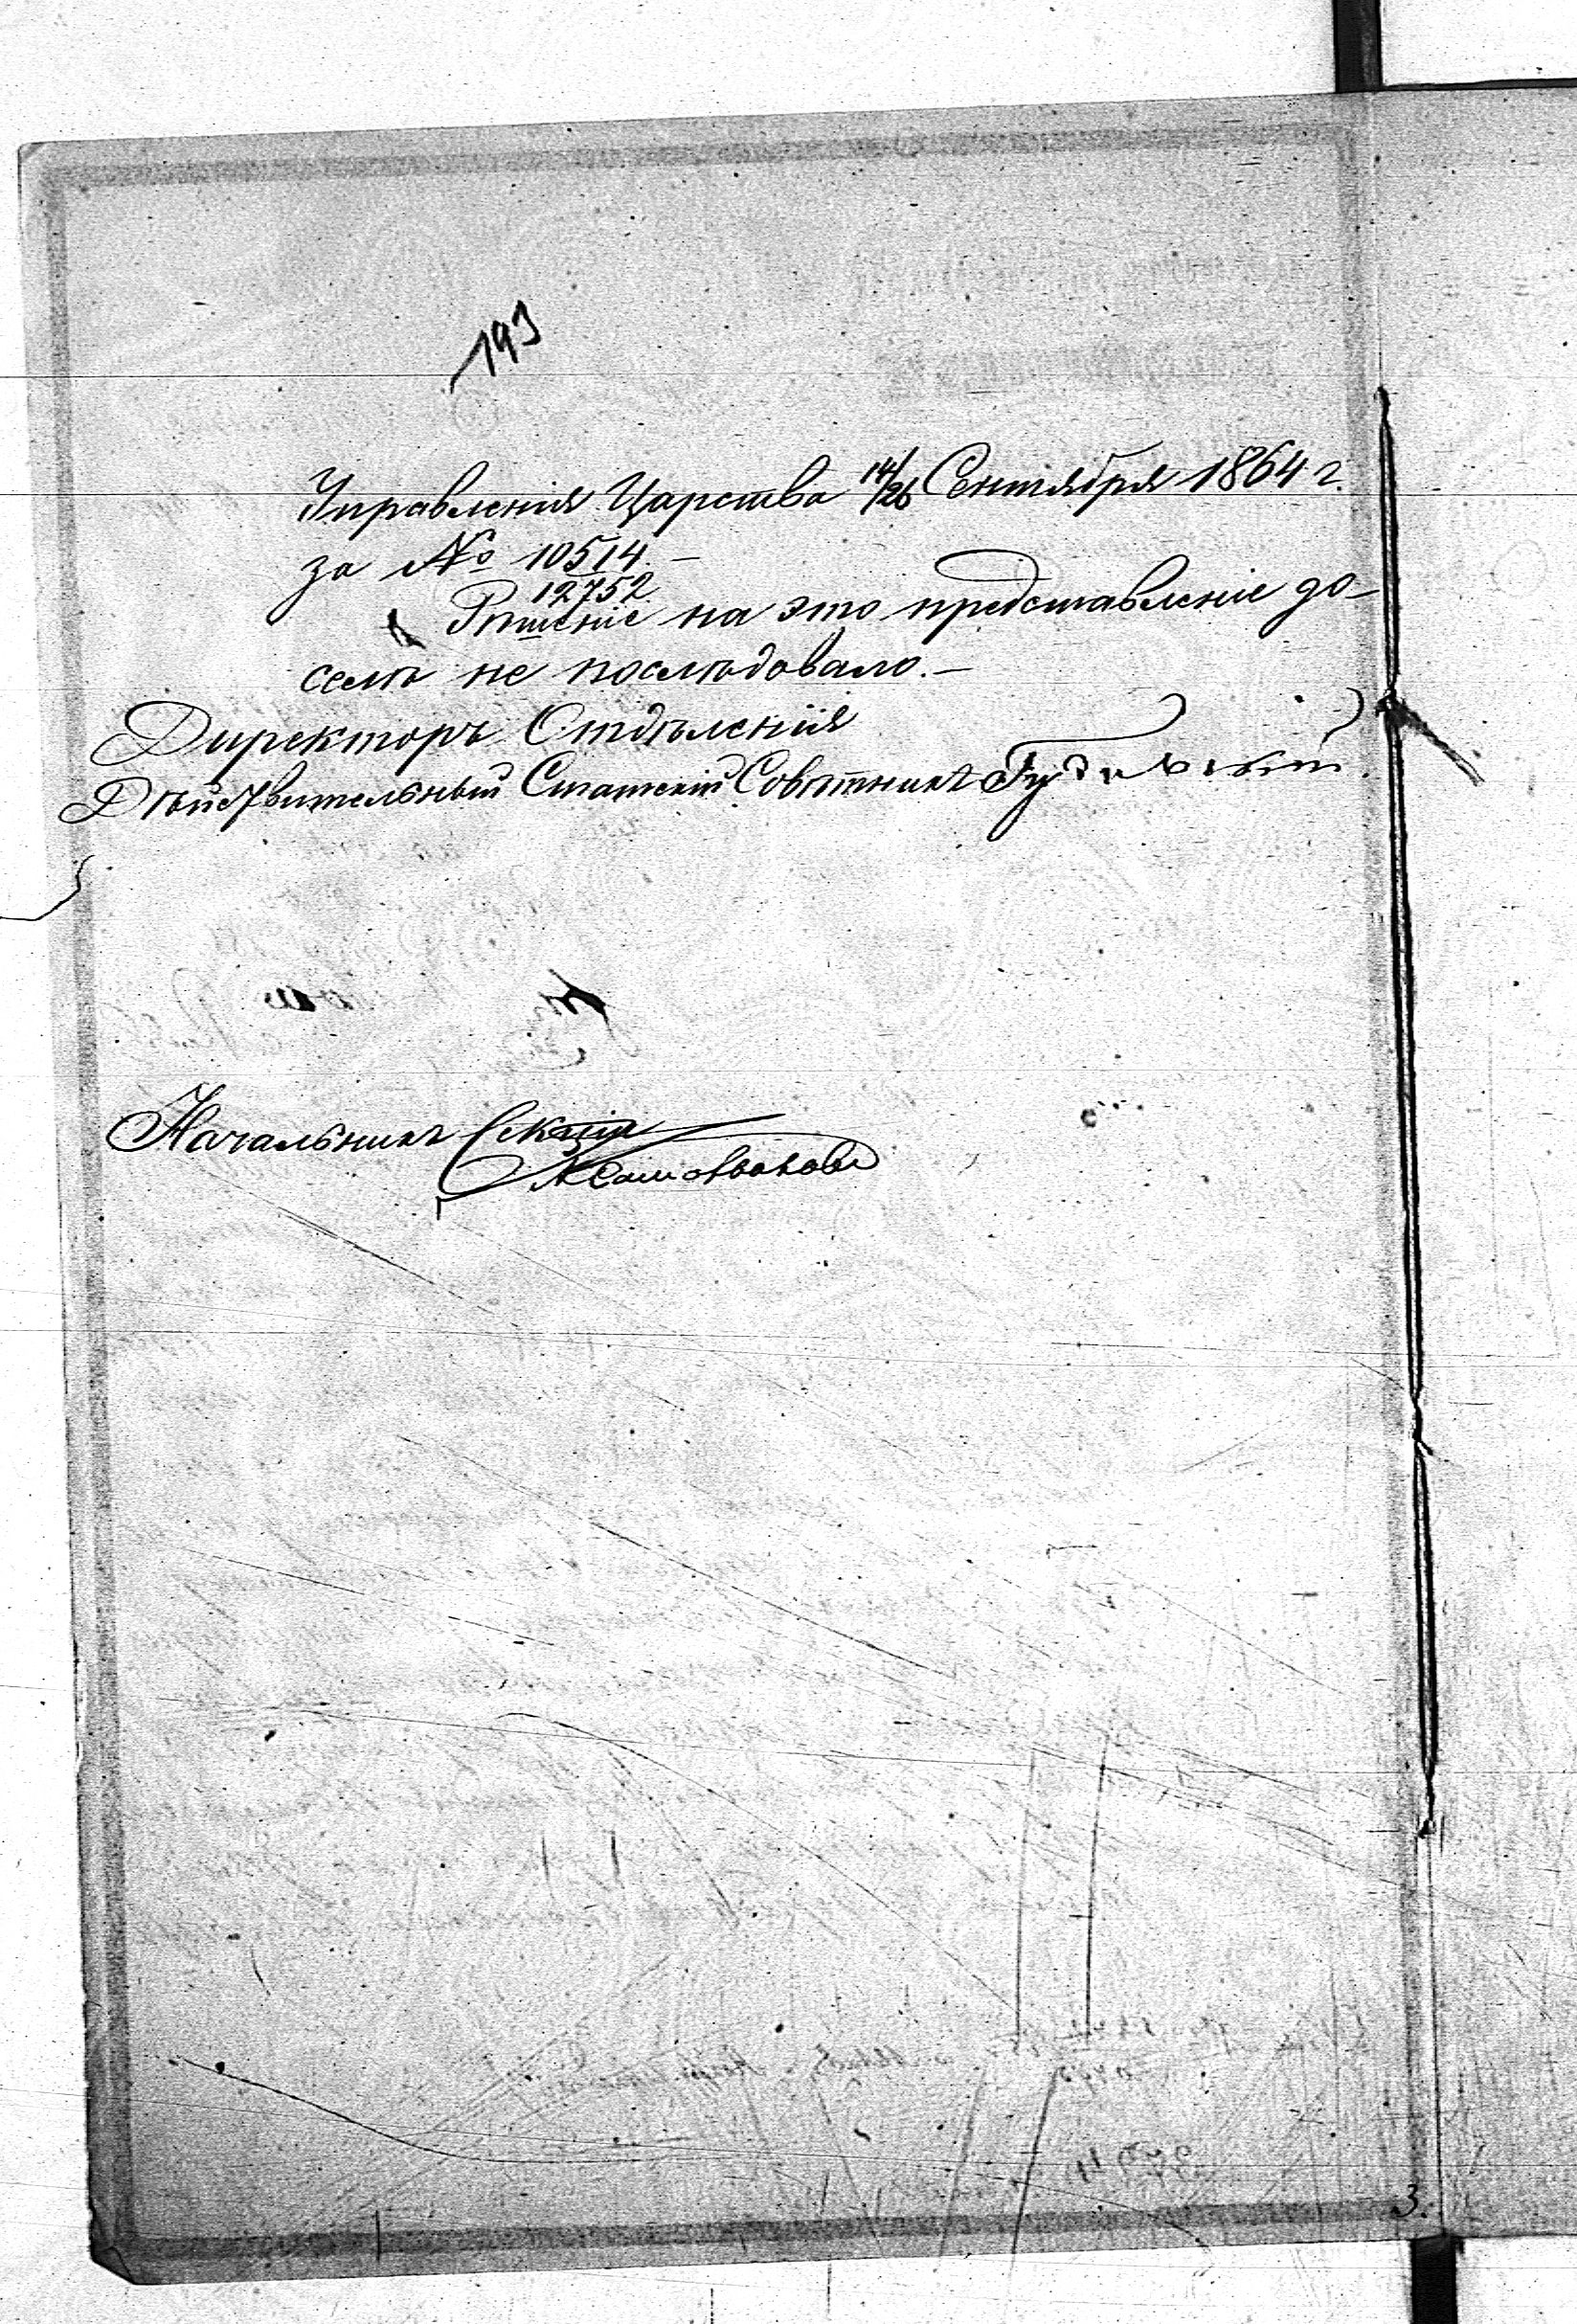 193
Управленія Царства 14/26 Сентября 1864 г.
за № 10514.—
12752
Рѣшеніе на это представленіе до-
селѣ не послѣдовало.—
Директоръ Отдѣленія
Дѣйствительный Статскій Совѣтникъ
Начальникъ Секціи
3.